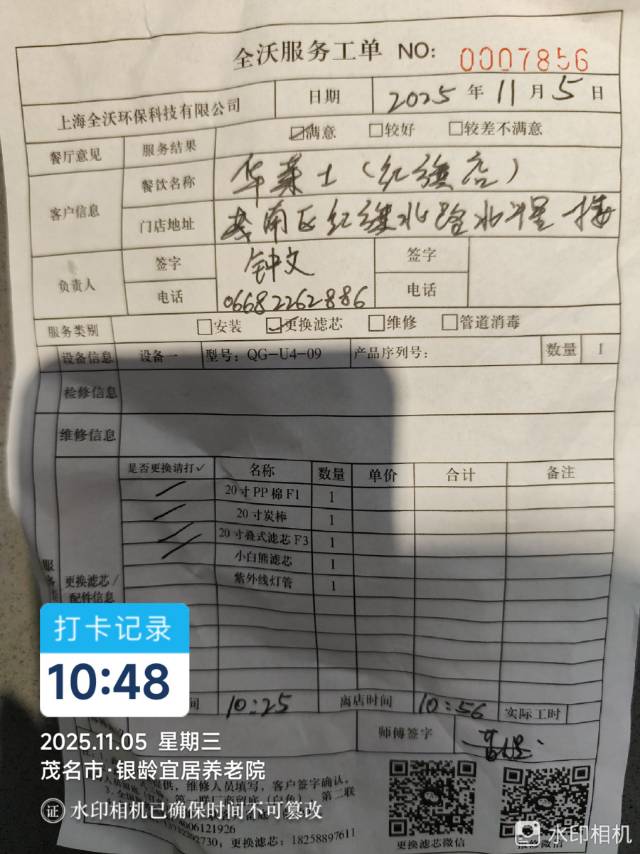 全沃服务工单 NO: 0007856
上海全沃环保科技有限公司 日期 2025年11月5日
餐厅意见 服务结果 ☑满意 □较好 □较差不满意
客户信息 餐饮名称 华莱士（红旗店）
门店地址 茂南区红旗北路北 楼
负责人 签字 钟文 签字
电话 06682262886 电话
服务类别 □安装 ☑更换滤芯 □维修 □管道消毒
设备信息 设备一 型号：QG-U4-09 产品序列号： 数量 1
检修信息
维修信息
是否更换请打✓ 名称 数量 单价 合计 备注
20寸PP棉F1 1
20寸炭棒 1
20寸叠式滤芯F3 1
小白熊滤芯 1
紫外线灯管 1
更换滤芯/
配件信息
打卡记录
10:48
间 10:25 离店时间 10:56 实际工时
师傅签字
2025.11.05 星期三
茂名市·银龄宜居养老院
提供，维修人员填写，客户签字确认。
第二联
证 水印相机已确保时间不可篡改
06121926
2730；更换滤芯：18258897611
更换滤芯微信
水印相机